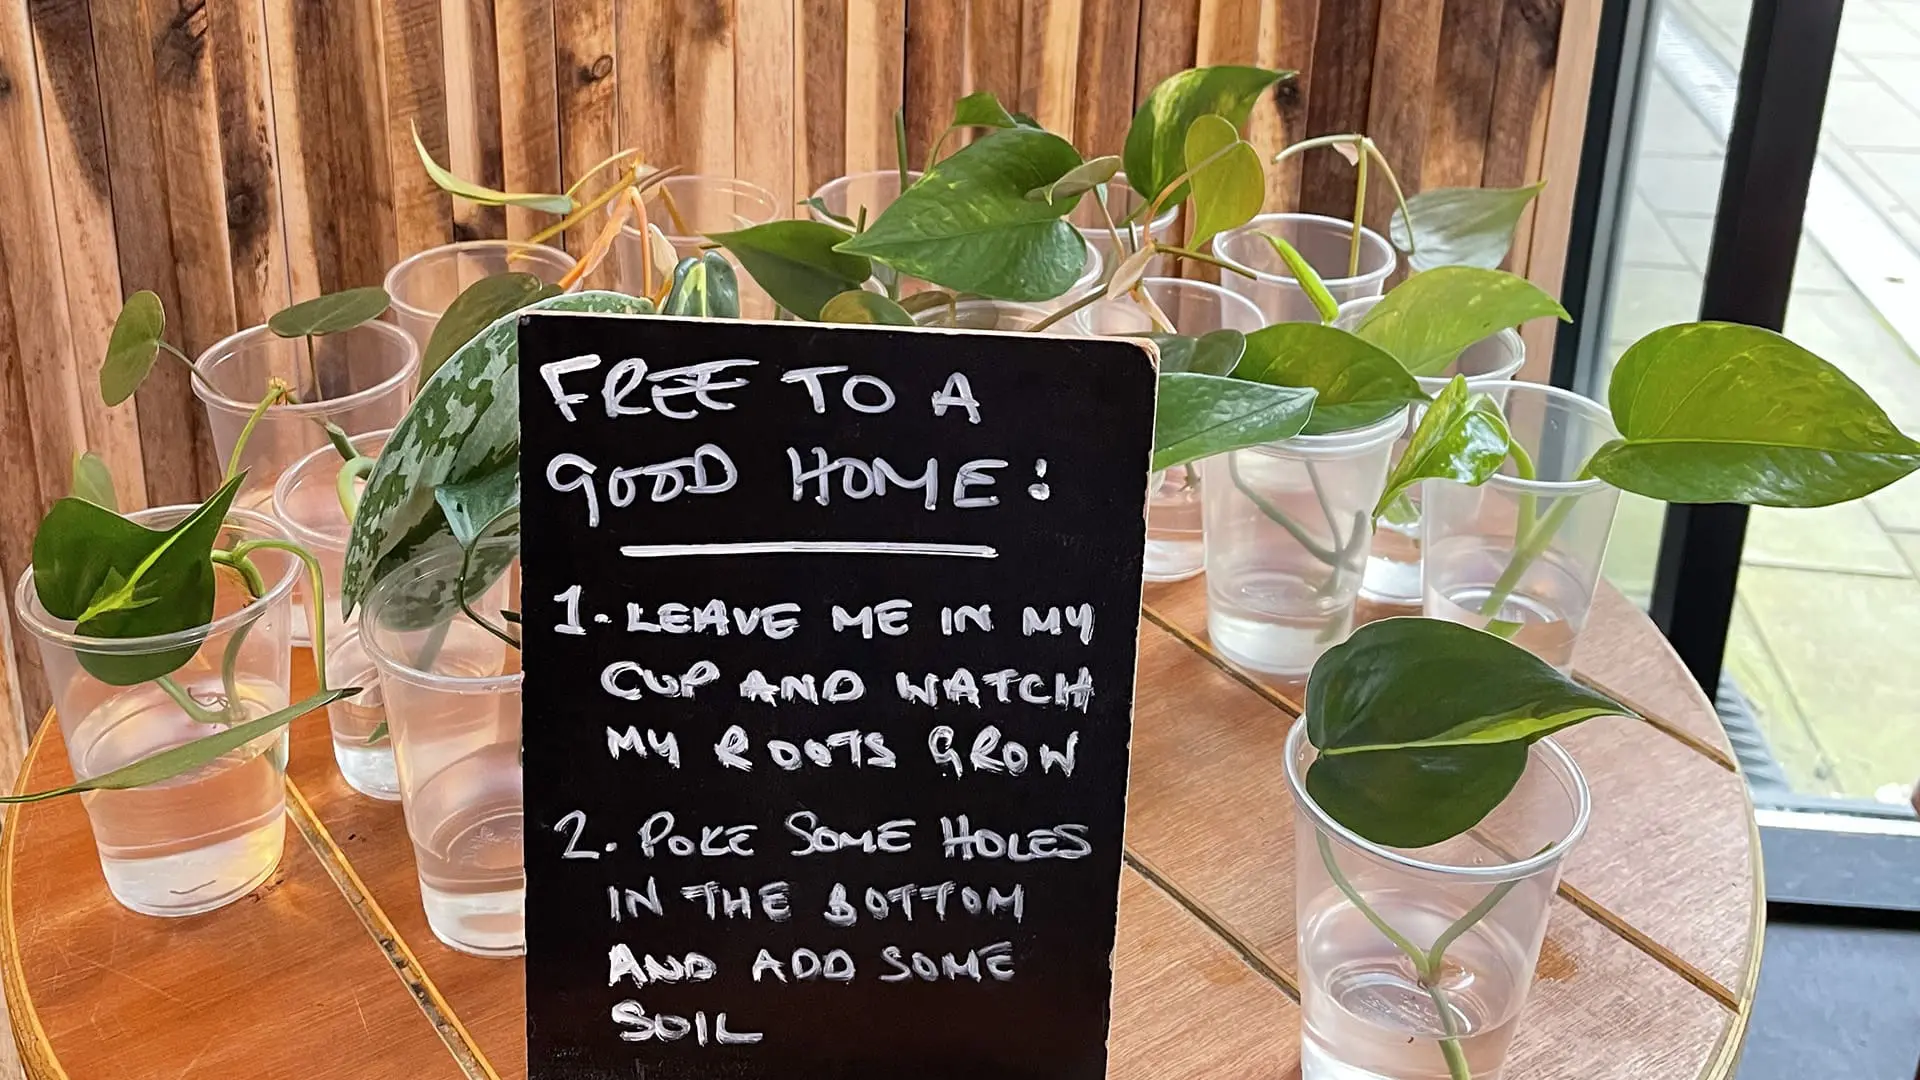 FREE TO A
GOOD HOME:
1. LEAVE ME IN MY
CUP AND WATCH
MY ROOTS GROW
2. POKE SOME HOLES
IN THE BOTTOM
AND ADD SOME
SOIL